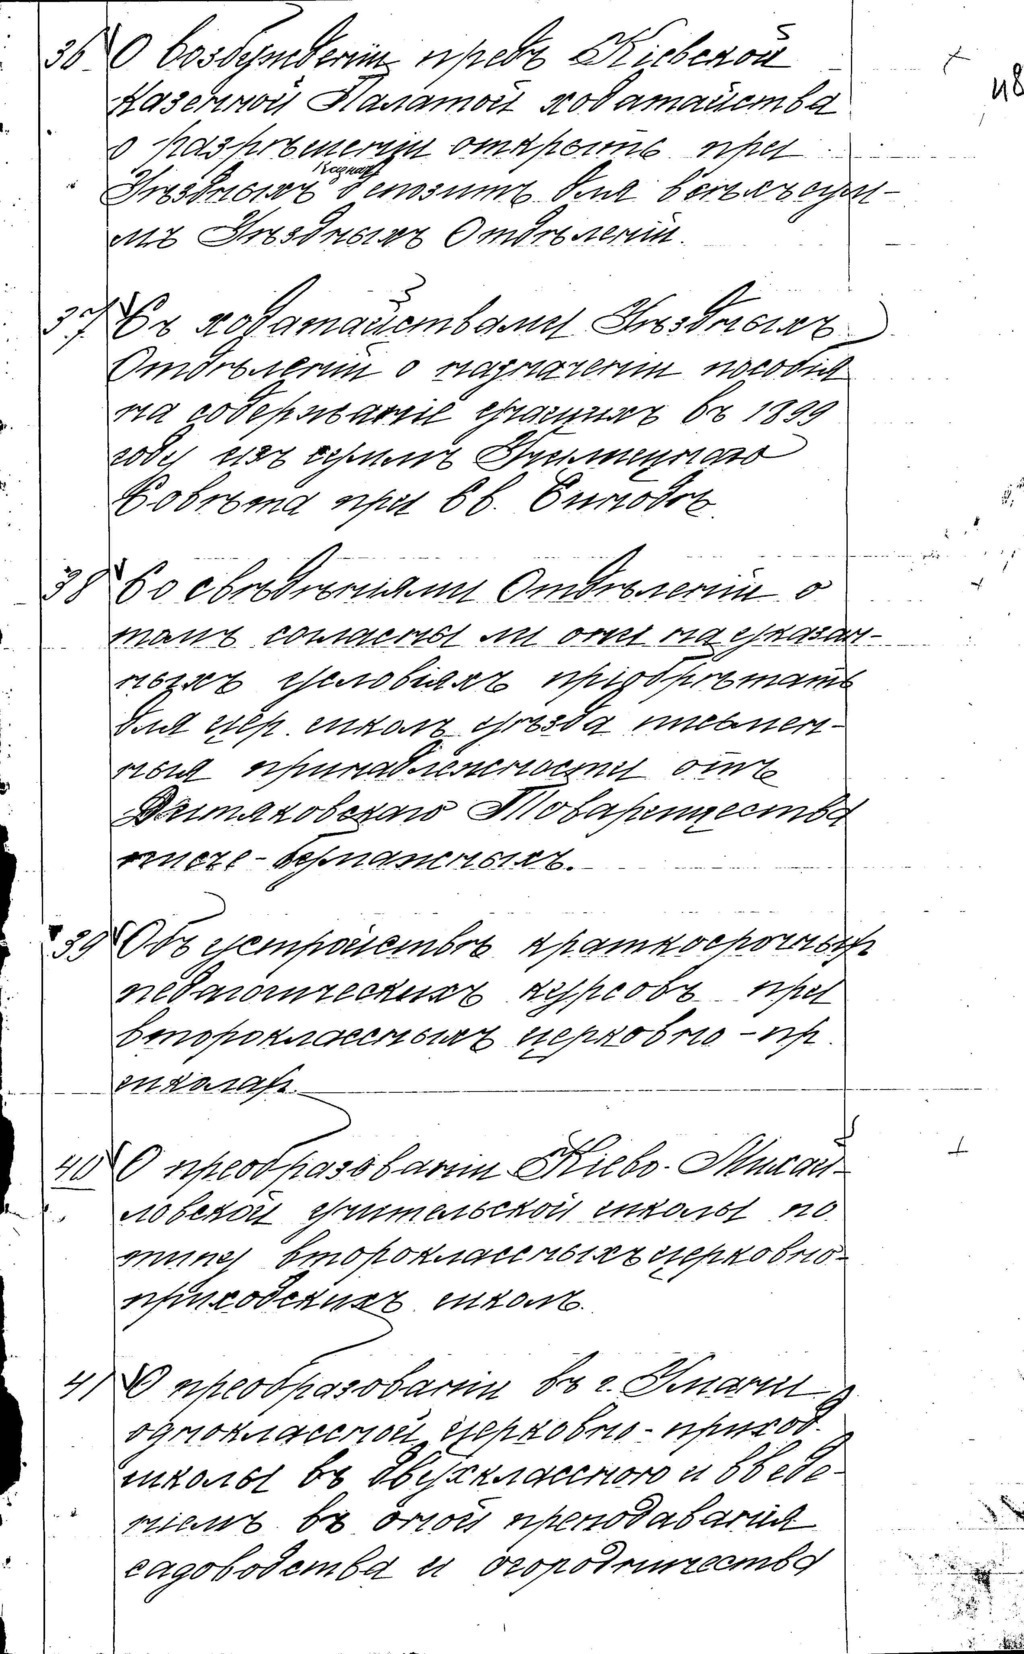 48
36 О возбужденіи предъ Кіевской
Казенной Палатой ходатайства
о разрѣшеніи открыть при
Казнач.
Уѣздныхъ депозитъ для всѣхъ сум-
мъ Уѣздныхъ Отдѣленій.
37 Съ ходатайствами Уѣздныхъ
Отдѣленій о назначеніи пособія
на содержаніе учащихъ въ 1899
году изъ суммъ Училищнаго
Совѣта при Св. Синодѣ.
38 Со свѣдѣніями Отдѣленій о
томъ согласны ли они на указан-
ныхъ условіяхъ пріобрѣтать
для цер. школъ уѣзда письмен-
ныя принадлежности отъ
Дитяковскаго Товарищества
писче-бумажныхъ.
39 Объ устройствѣ краткосрочных
педагогическихъ курсовъ при
второклассныхъ церковно-пр.
школах.
40 О преобразованіи Кіево-Михай-
ловской учительской школы по
типу второклассныхъ церковно-
приходскихъ школъ.
41 О преобразованіи въ г. Умани
одноклассной церковно-приход.
школы въ двухклассную и введе-
ніемъ въ оной преподаванія
садоводства и огородничества